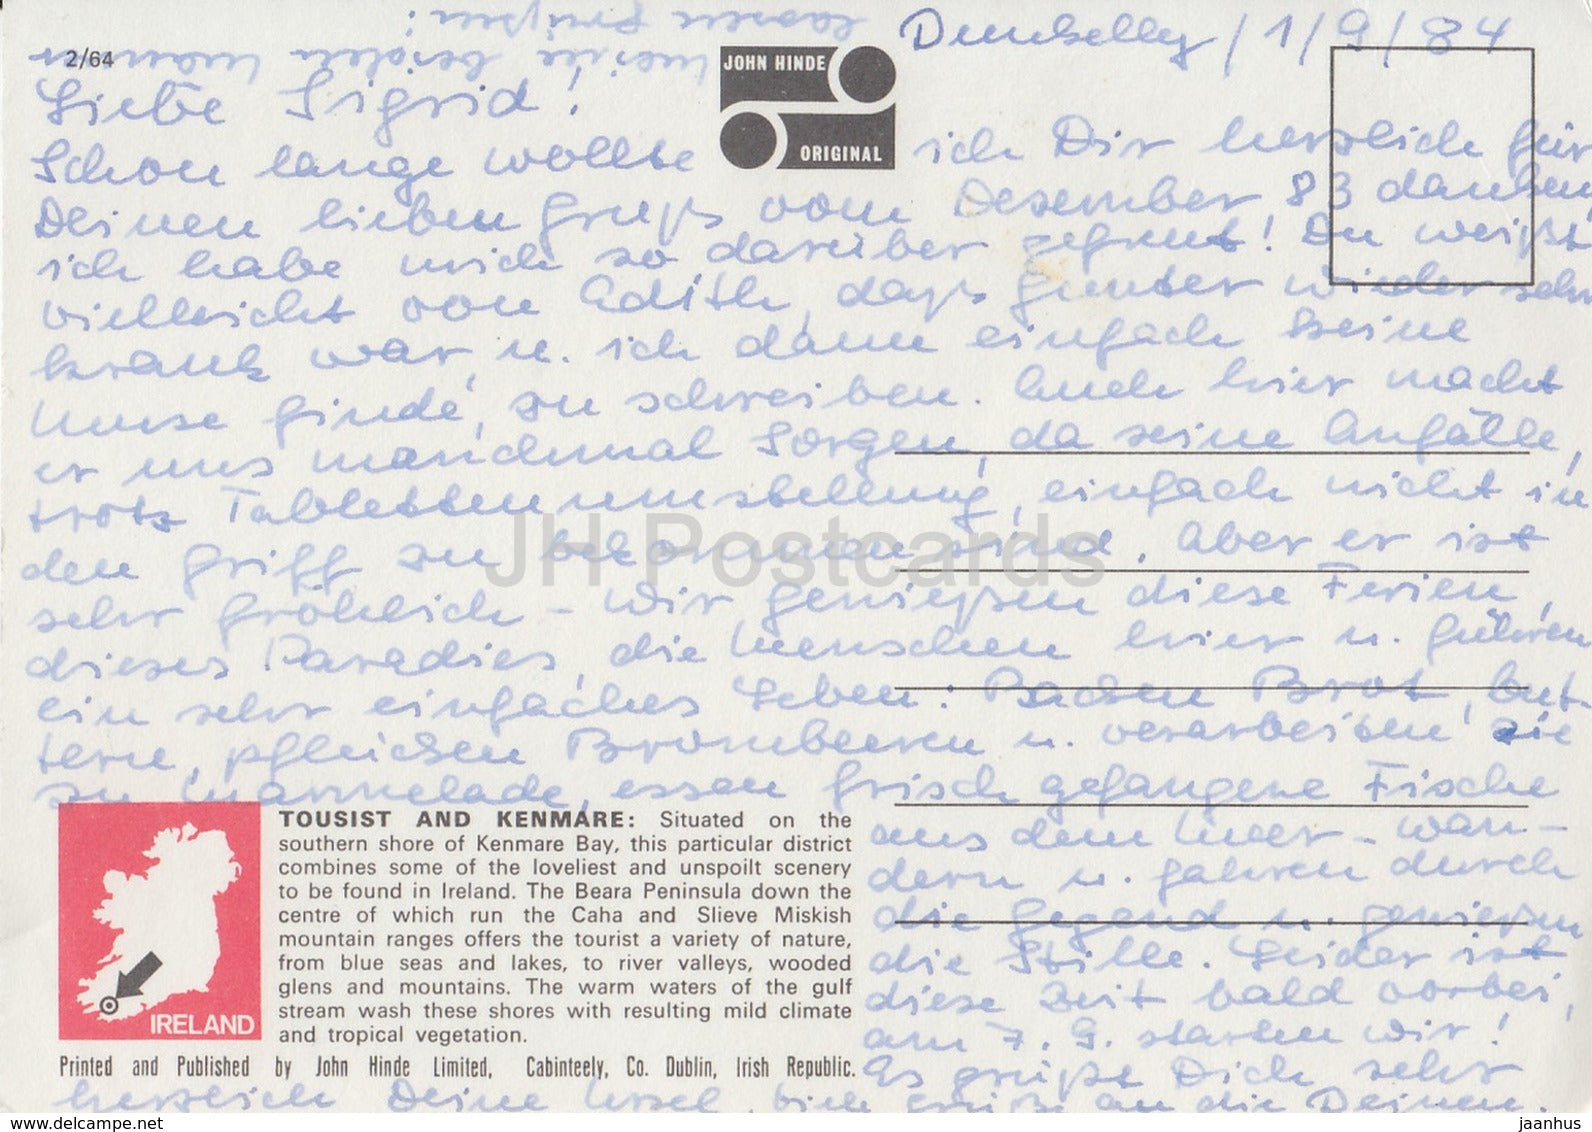 Dunkelly / 1/9/84
2/64
JOHN HINDE
ORIGINAL
Liebe Sigrid!
Schon lange wollte ich Dir herzlich für
Deinen lieben Gruß vom Dezember 83 danken,
ich habe mich so darüber gefreut! Du weißt
vielleicht von Edith, daß Gunter wieder sehr
krank war, u. ich dann einfach keine
Muse finde, zu schreiben. Auch hier macht
er uns manchmal Sorgen, da seine Anfälle,
trotz Tablettenumstellung, einfach nicht in
den Griff zu bekommen sind. Aber er ist
sehr fröhlich - Wir genießen diese Ferien,
dieses Paradies, die Menschen hier u. führen
ein sehr einfaches Leben: Backen Brot, but-
tern, pflücken Brombeeren u. verarbeiten sie
zu Marmelade, essen frisch gefangene Fische
aus dem Meer - wan-
dern u. fahren durch
die Gegend u. genießen
die Stille. Leider ist
diese Zeit bald vorbei,
am 7. 9. starten wir!
Es grüßt Dich sehr
herzlich Deine Ursel, bitte grüße an die Deinen.
beiden
warmen
lassen grüßen!
TOUSIST AND KENMARE: Situated on the
southern shore of Kenmare Bay, this particular district
combines some of the loveliest and unspoilt scenery
to be found in Ireland. The Beara Peninsula down the
centre of which run the Caha and Slieve Miskish
mountain ranges offers the tourist a variety of nature,
from blue seas and lakes, to river valleys, wooded
glens and mountains. The warm waters of the gulf
stream wash these shores with resulting mild climate
and tropical vegetation.
IRELAND
Printed and Published by John Hinde Limited, Cabinteely, Co. Dublin, Irish Republic.
JH Postcards
www.delcampe.net
jaanhus